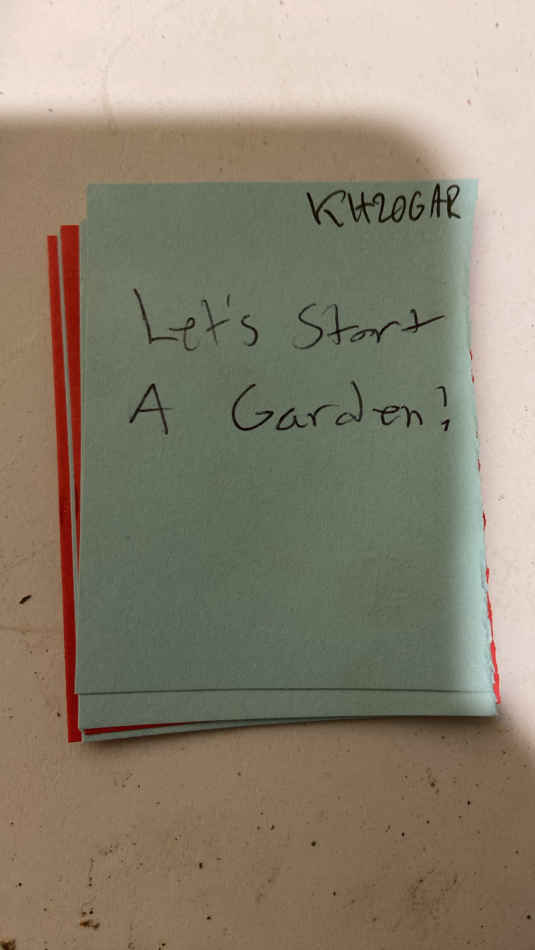 KH20GAR
Let's Start
A Garden!